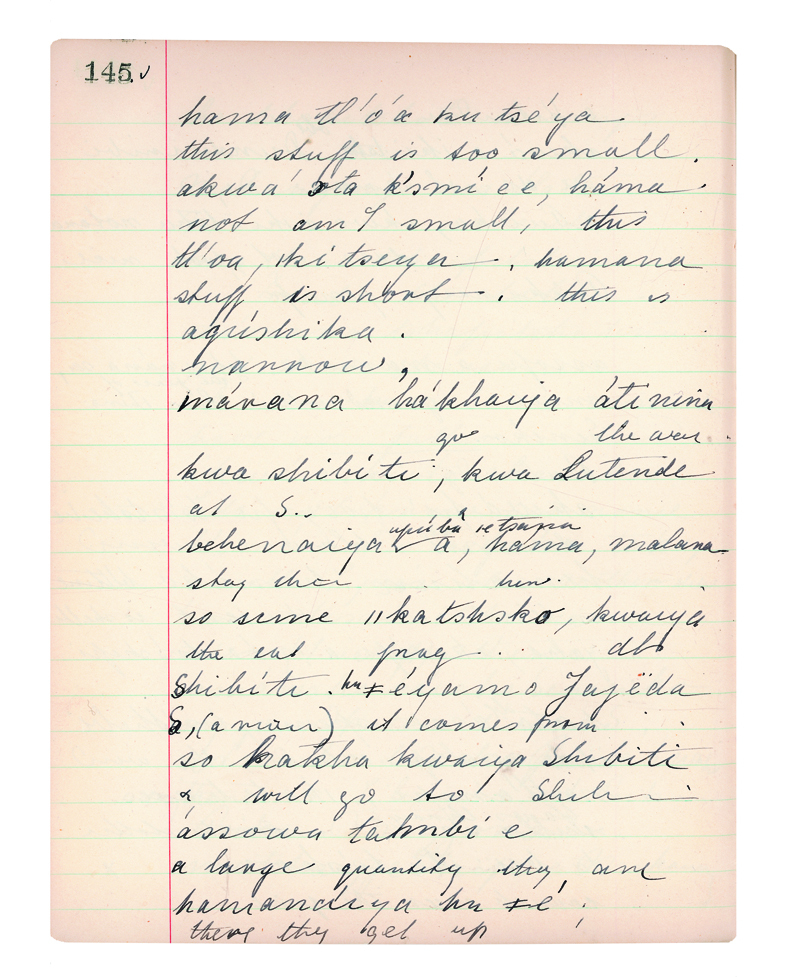 145 ✓
hama tl'óa ku tséya
this stuff is too small.
akwá ota k'smí e e, háma
not am I small, this
tl'oa, ǁkí tseya. hamana
stuff is short. this is
agúshika.
narrow,
mávana hákhaiya átinina
go the
kwa shibíti, kwa Lutende
at S..
behenaiya a, hama, malana
stay
so ǁkatshsko, kwaiya
the eat
Shibíti. hu ǂéyamo Jajëda
S, (a river) it comes from
so kakha kwaiya Shibiti
& will go to
ássowa tahnbí e
a large quantity they are
hu ǂé;
there they get up